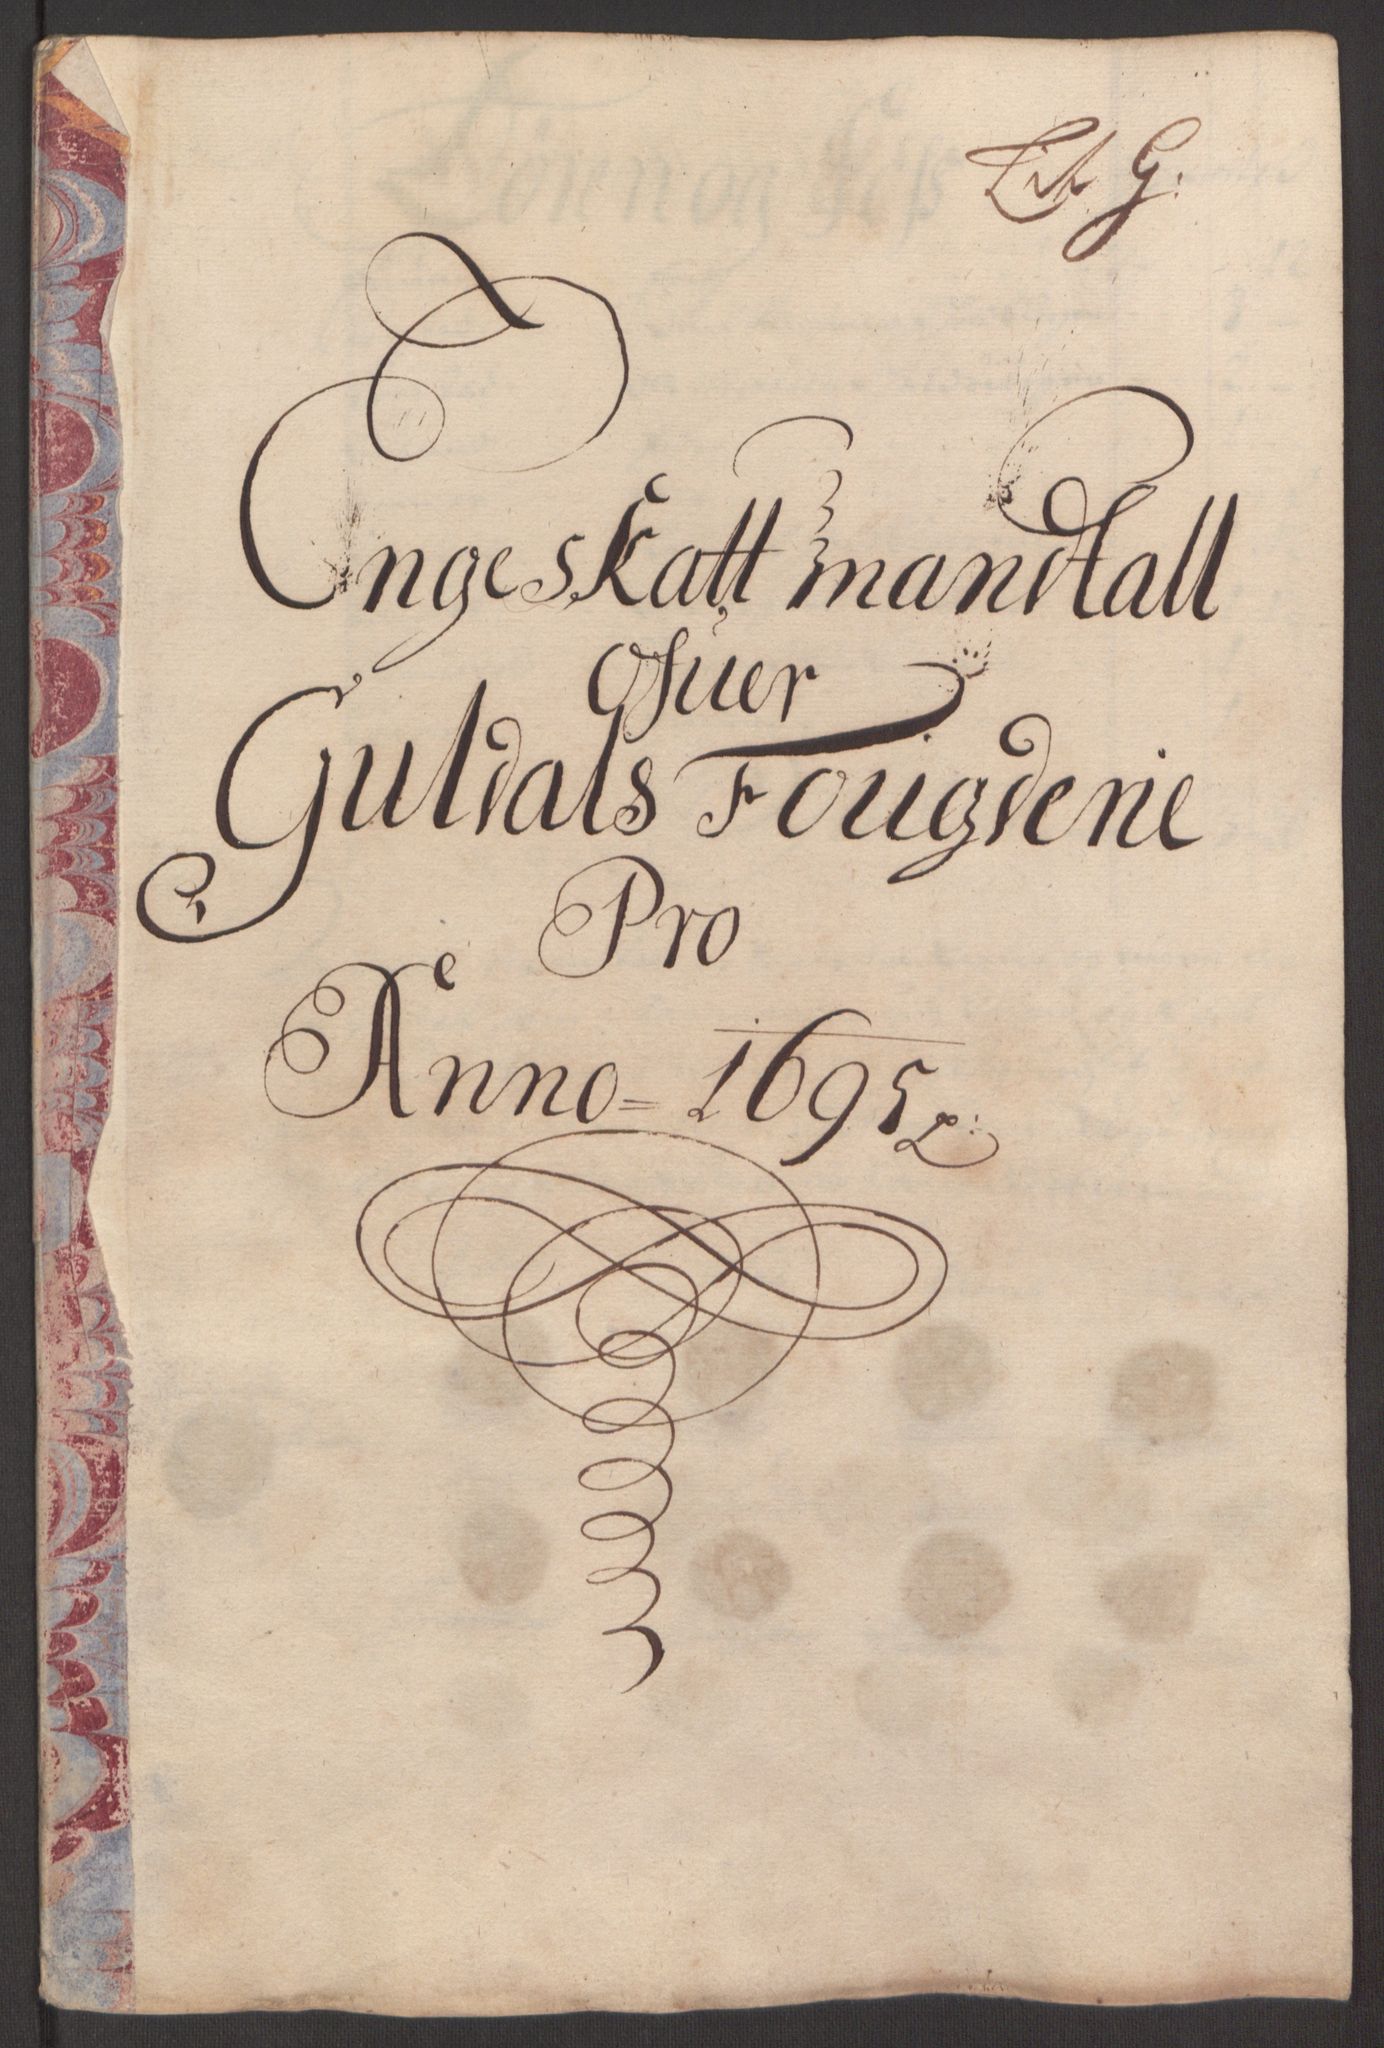 Lit G:
Engeskatt mandtall
Ofuer
Guldals Fougderie
Pro
Anno = 1695